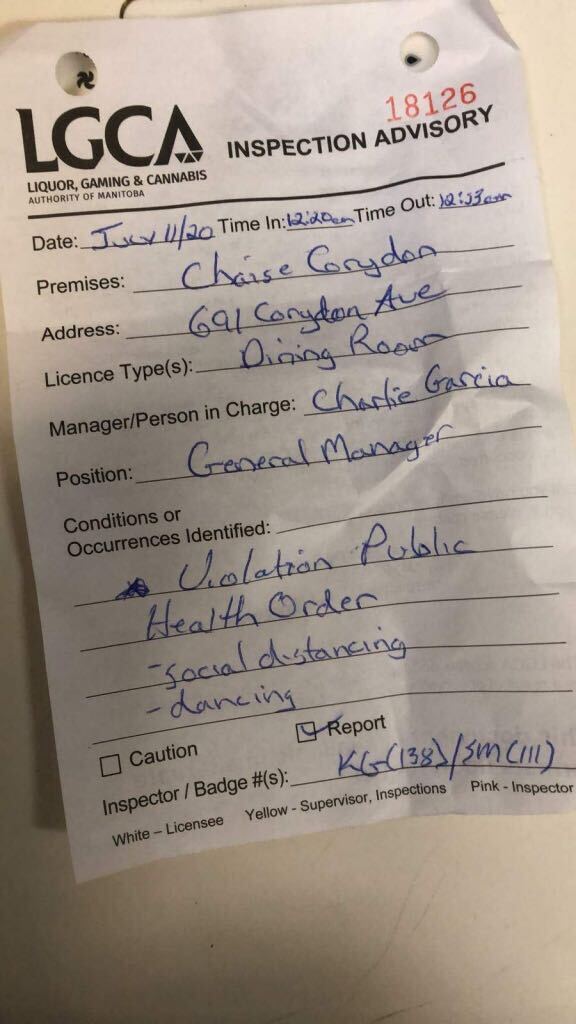 18126
LGCA INSPECTION ADVISORY
LIQUOR, GAMING & CANNABIS
AUTHORITY OF MANITOBA
Date: July 11/20 Time In: 12:20am Time Out: 12:33am
Premises: Chaise Corydon
Address: 691 Corydon Ave
Licence Type(s): Dining Room
Manager/Person in Charge: Charlie Garcia
Position: General Manager
Conditions or
Occurrences Identified:
Violation Public
Health Order
-social distancing
-dancing
Caution Report
Inspector / Badge #(s): KG(138)/SM(111)
White – Licensee Yellow - Supervisor, Inspections Pink - Inspector